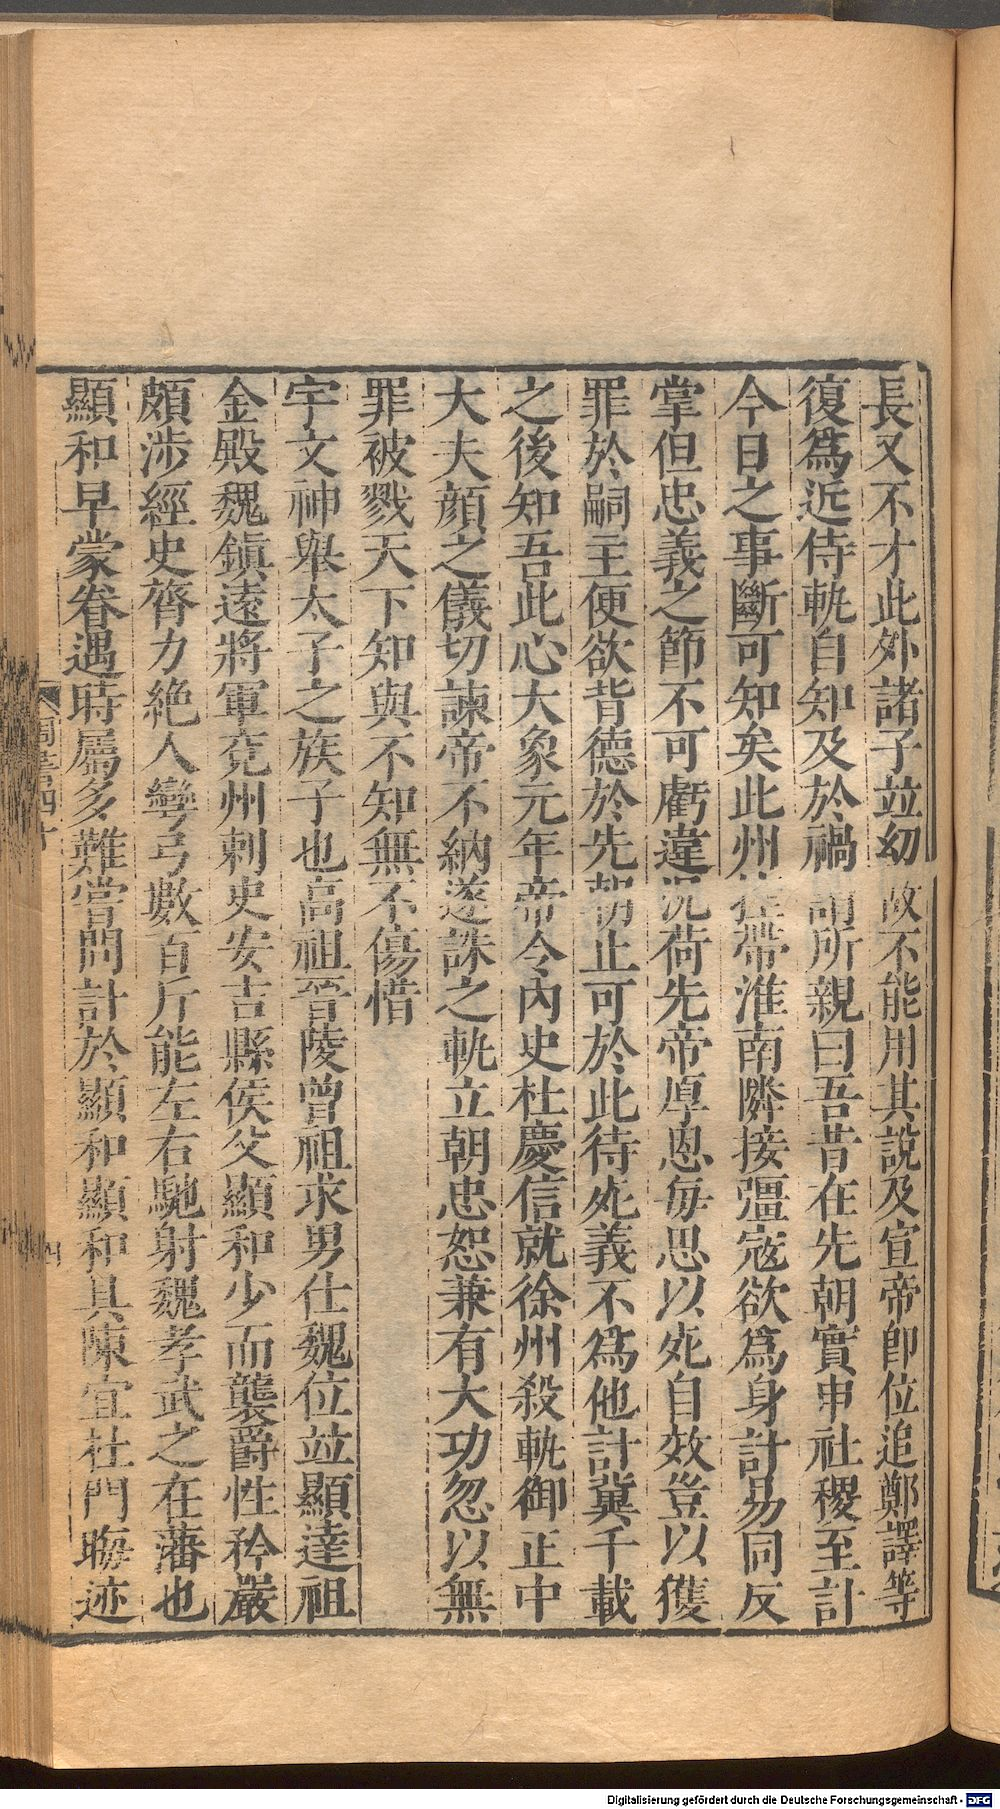 長又不才此外諸子竝幼故不能用其說及宣帝卽位追鄭譯等
復爲近侍軌自知及於禍謂所親曰吾昔在先朝實申社稷至計
今日之事斷可知矣此州控帶淮南隣接彊寇欲爲身計易同反
掌但忠義之節不可虧違況荷先帝厚恩每思以死自效豈以獲
罪於嗣主便欲背德於先朝止可於此待死義不爲他計冀千載
之後知吾此心大象元年帝令內史杜慶信就徐州殺軌御正中
大夫顏之儀切諫帝不納遂誅之軌立朝忠恕兼有大功忽以無
罪被戮天下知與不知無不傷惜
宇文神舉太子之族子也高祖晉陵曾祖求男仕魏位竝顯達祖
金殿魏鎭遠將軍兗州刺史安吉縣侯父顯和少而襲爵性矜嚴
頗涉經史膂力絕人彎弓數百斤能左右馳射魏孝武之在藩也
顯和早蒙眷遇時屬多難嘗問計於顯和顯和具陳宜杜門晦迹
周書四十
四
Digitalisierung gefördert durch die Deutsche Forschungsgemeinschaft - DFG